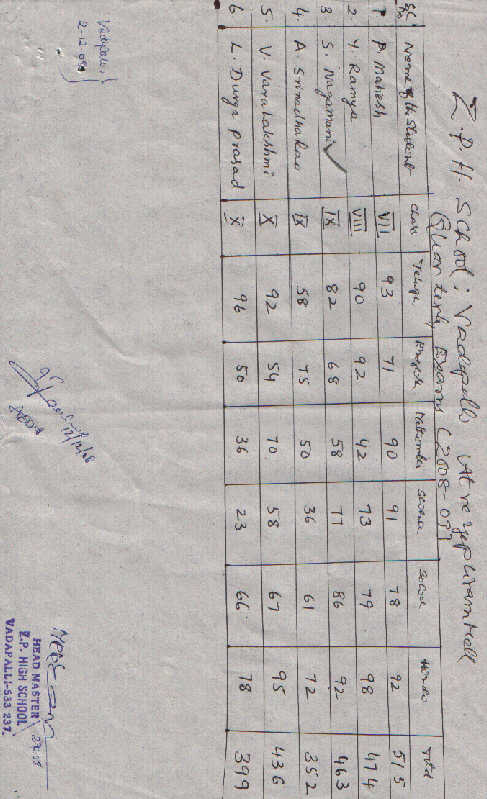 Z.P.H. School: Vadapalli
Quarterly Exams (2008-09)
Sl. No Name of the Student Class Telugu English Mathematics Science Social Hindi Total
1 B. Mahesh VII 93 71 90 91 78 92 515
2 Y. Ramya VIII 90 92 42 73 79 98 474
3 S. Nagamani IX 82 68 58 77 86 92 463
4. A. Srinadharao IX 58 75 50 36 61 72 352
5. V. Varalakshmi X 92 54 70 58 67 95 436
6 L. Durga prasad X 96 50 36 23 66 78 399
Vadapalli
HEAD MASTER
Z.P. HIGH SCHOOL
VADAPALLI-533 237.